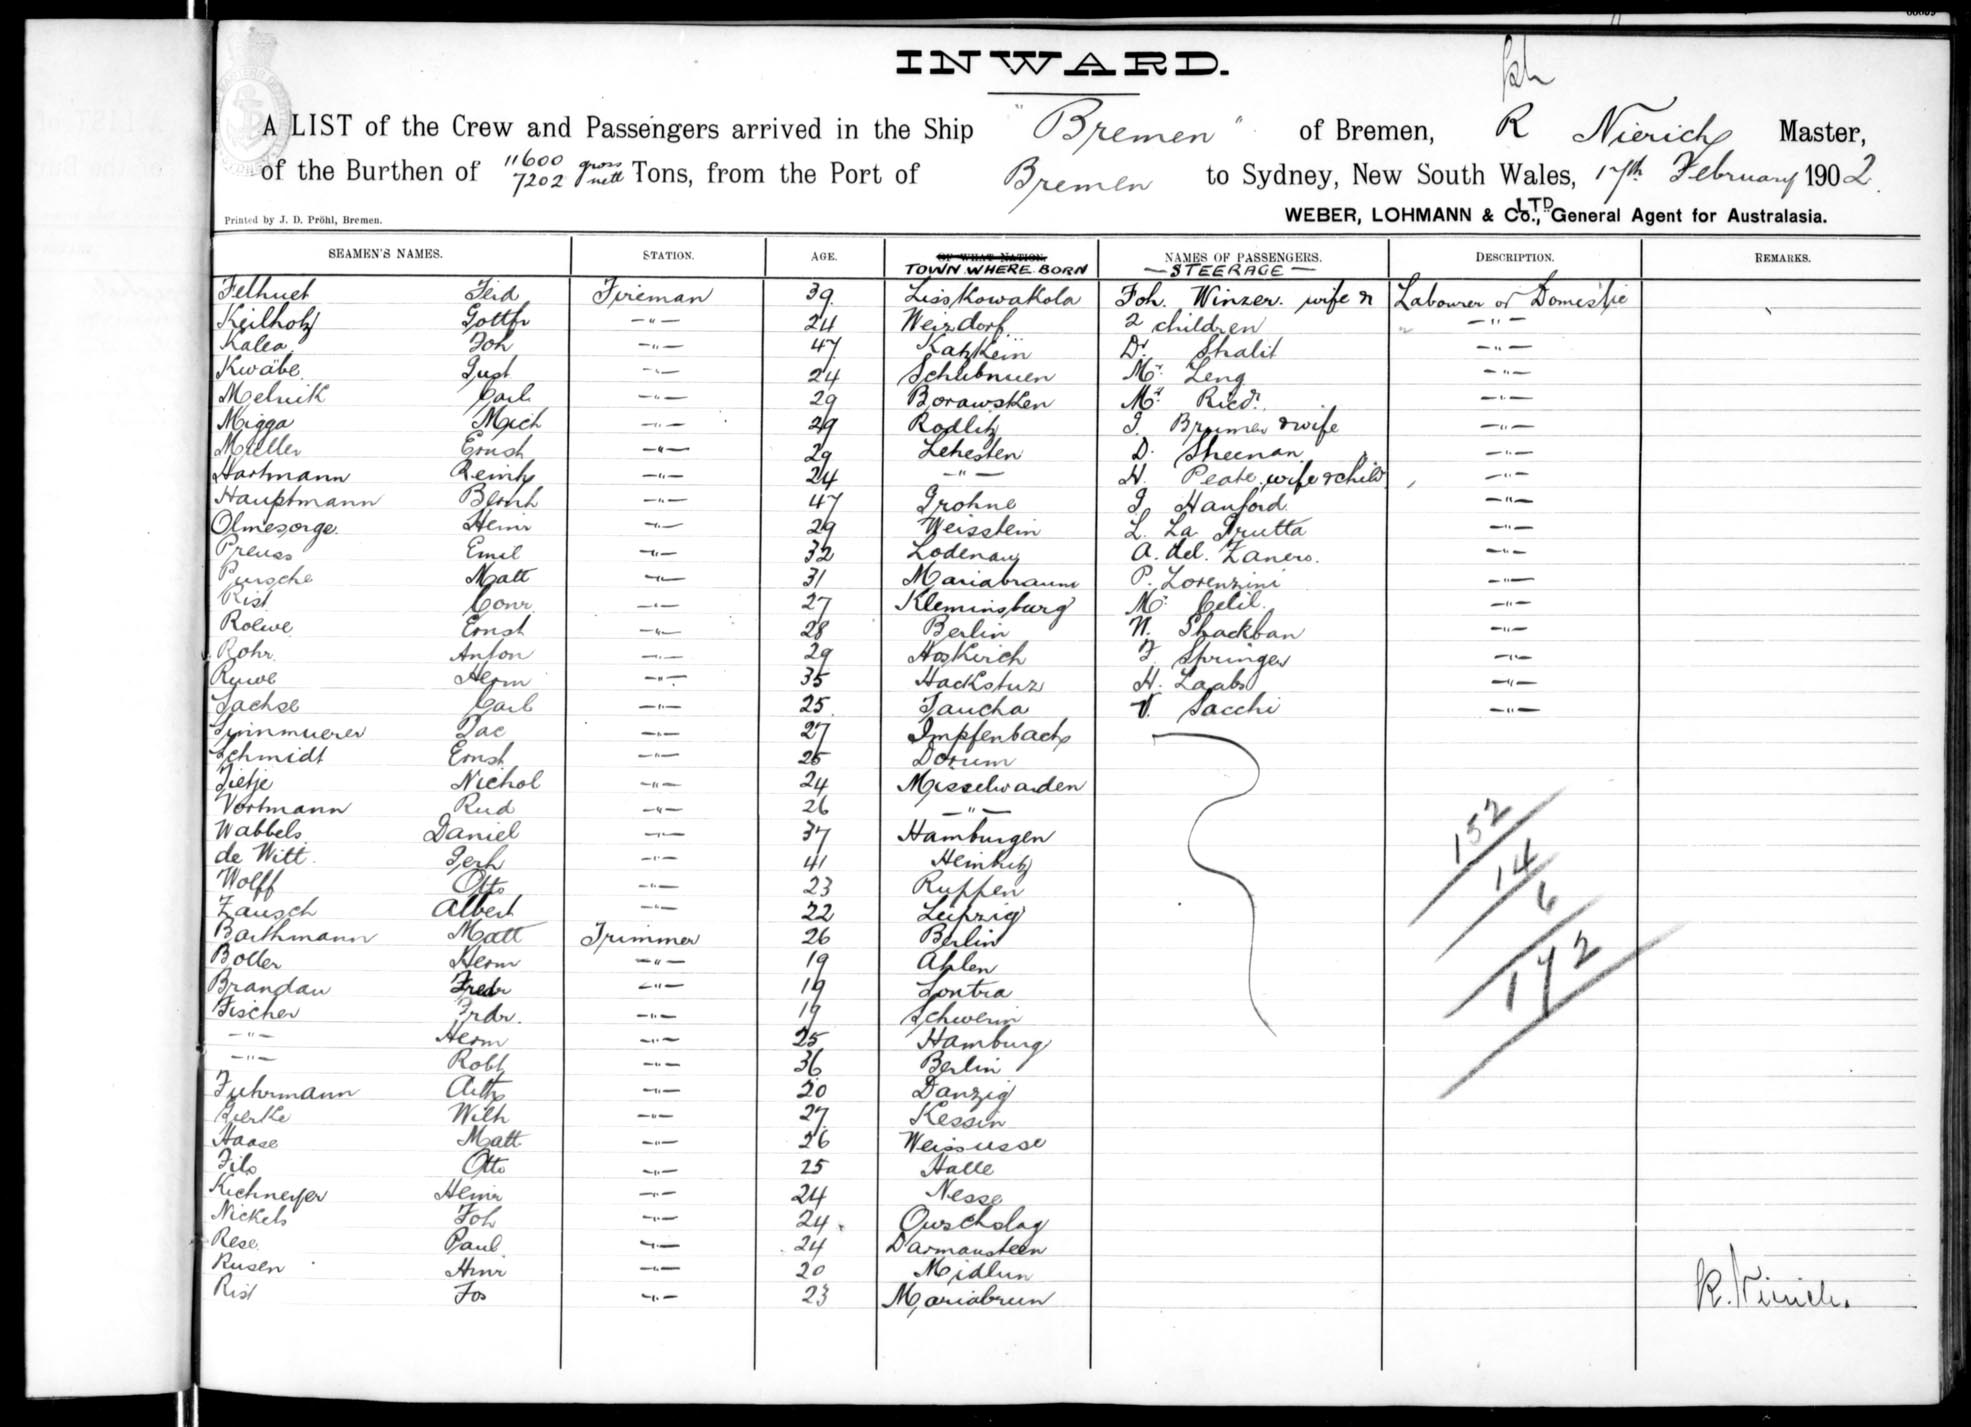 INWARD.
A LIST of the Crew and Passengers arrived in the Ship "Bremen" of Bremen, R Nierich Master,
of the Burthen of 11600 gross 7202 nett Tons, from the Port of Bremen to Sydney, New South Wales, 17th February 1902.
Printed by J. D. Pröhl, Bremen.
WEBER, LOHMANN & Co., LTD General Agent for Australasia.
SEAMEN'S NAMES. STATION. AGE. OF WHAT NATION. NAMES OF PASSENGERS. DESCRIPTION. REMARKS.
TOWN WHERE BORN — STEERAGE —
Ferd Fireman 39 Lisskowakola Joh. Winzer. wife & Labourer or Domestic
Keilholz Gottfr —"— 24 Weizdorf 2 children —"—
Kalea Joh —"— 47 Dr. Shalit —"—
Kwäbe Gust —"— 24 Schubnuen Mr. Leng —"—
Melnik Carl —"— 29 Borawsken Mr. —"—
Migga Mich —"— 29 Rodlitz J. Bremer & wife —"—
Müller Ernst —"— 29 Lehesten D. Sheenan —"—
Hartmann Reinh —"— 24 —"— H. Peate, wife & child —"—
Hauptmann Bernh —"— 47 Grohne J. Hanford —"—
Olmesorge Heinr —"— 29 Weisstein L. La Grutta —"—
Preuss Emil —"— 32 Lodenau A. del. Zanero. —"—
Pursche Matt —"— 31 Mariabraunn P. Lorenzini —"—
Rist Conr —"— 27 Kleminsburg Mr. Celil. —"—
Roewe Ernst —"— 28 Berlin N. Shackban —"—
Rohr Anton —"— 29 Hoskirch F. Springer —"—
Ruwe Herm —"— 35 Hackstuz H. Laabs —"—
Sachse Carl —"— 25 Taucha V. Sacchi —"—
Sinnmuerer Jac —"— 27 Impfenbach
Schmidt Ernst —"— 25 Dorum
Tietje Nichol —"— 24 Misselwarden
Vortmann Rud —"— 26 —"—
Wabbels Daniel —"— 37 Hamburgen
de Witt Gerh —"— 41
Wolff Otto —"— 23 Ruppen
Zausch Albert —"— 22 Leipzig
Barthmann Matt Trimmer 26 Berlin
Boller Herm —"— 19 Ahlen
Brandau Fredr —"— 19 Sontra
Fischer Frdr. —"— 19 Schwerin
—"— Herm —"— 25 Hamburg
—"— Robt —"— 36 Berlin
Fuhrmann Arth —"— 20 Danzig
Gierke Wilh —"— 27 Kessin
Haase Matt —"— 26 Weissusse
Jilo Otto —"— 25 Halle
Kichneyer Heinr —"— 24 Nesse
Nickels Joh —"— 24 Owschslag
Rese Paul —"— 24 Darmansteen
Rusen Hinr —"— 20 Midlun
Rist Jos —"— 23 Mariabrun
152
14
6
172
R. Nierich.